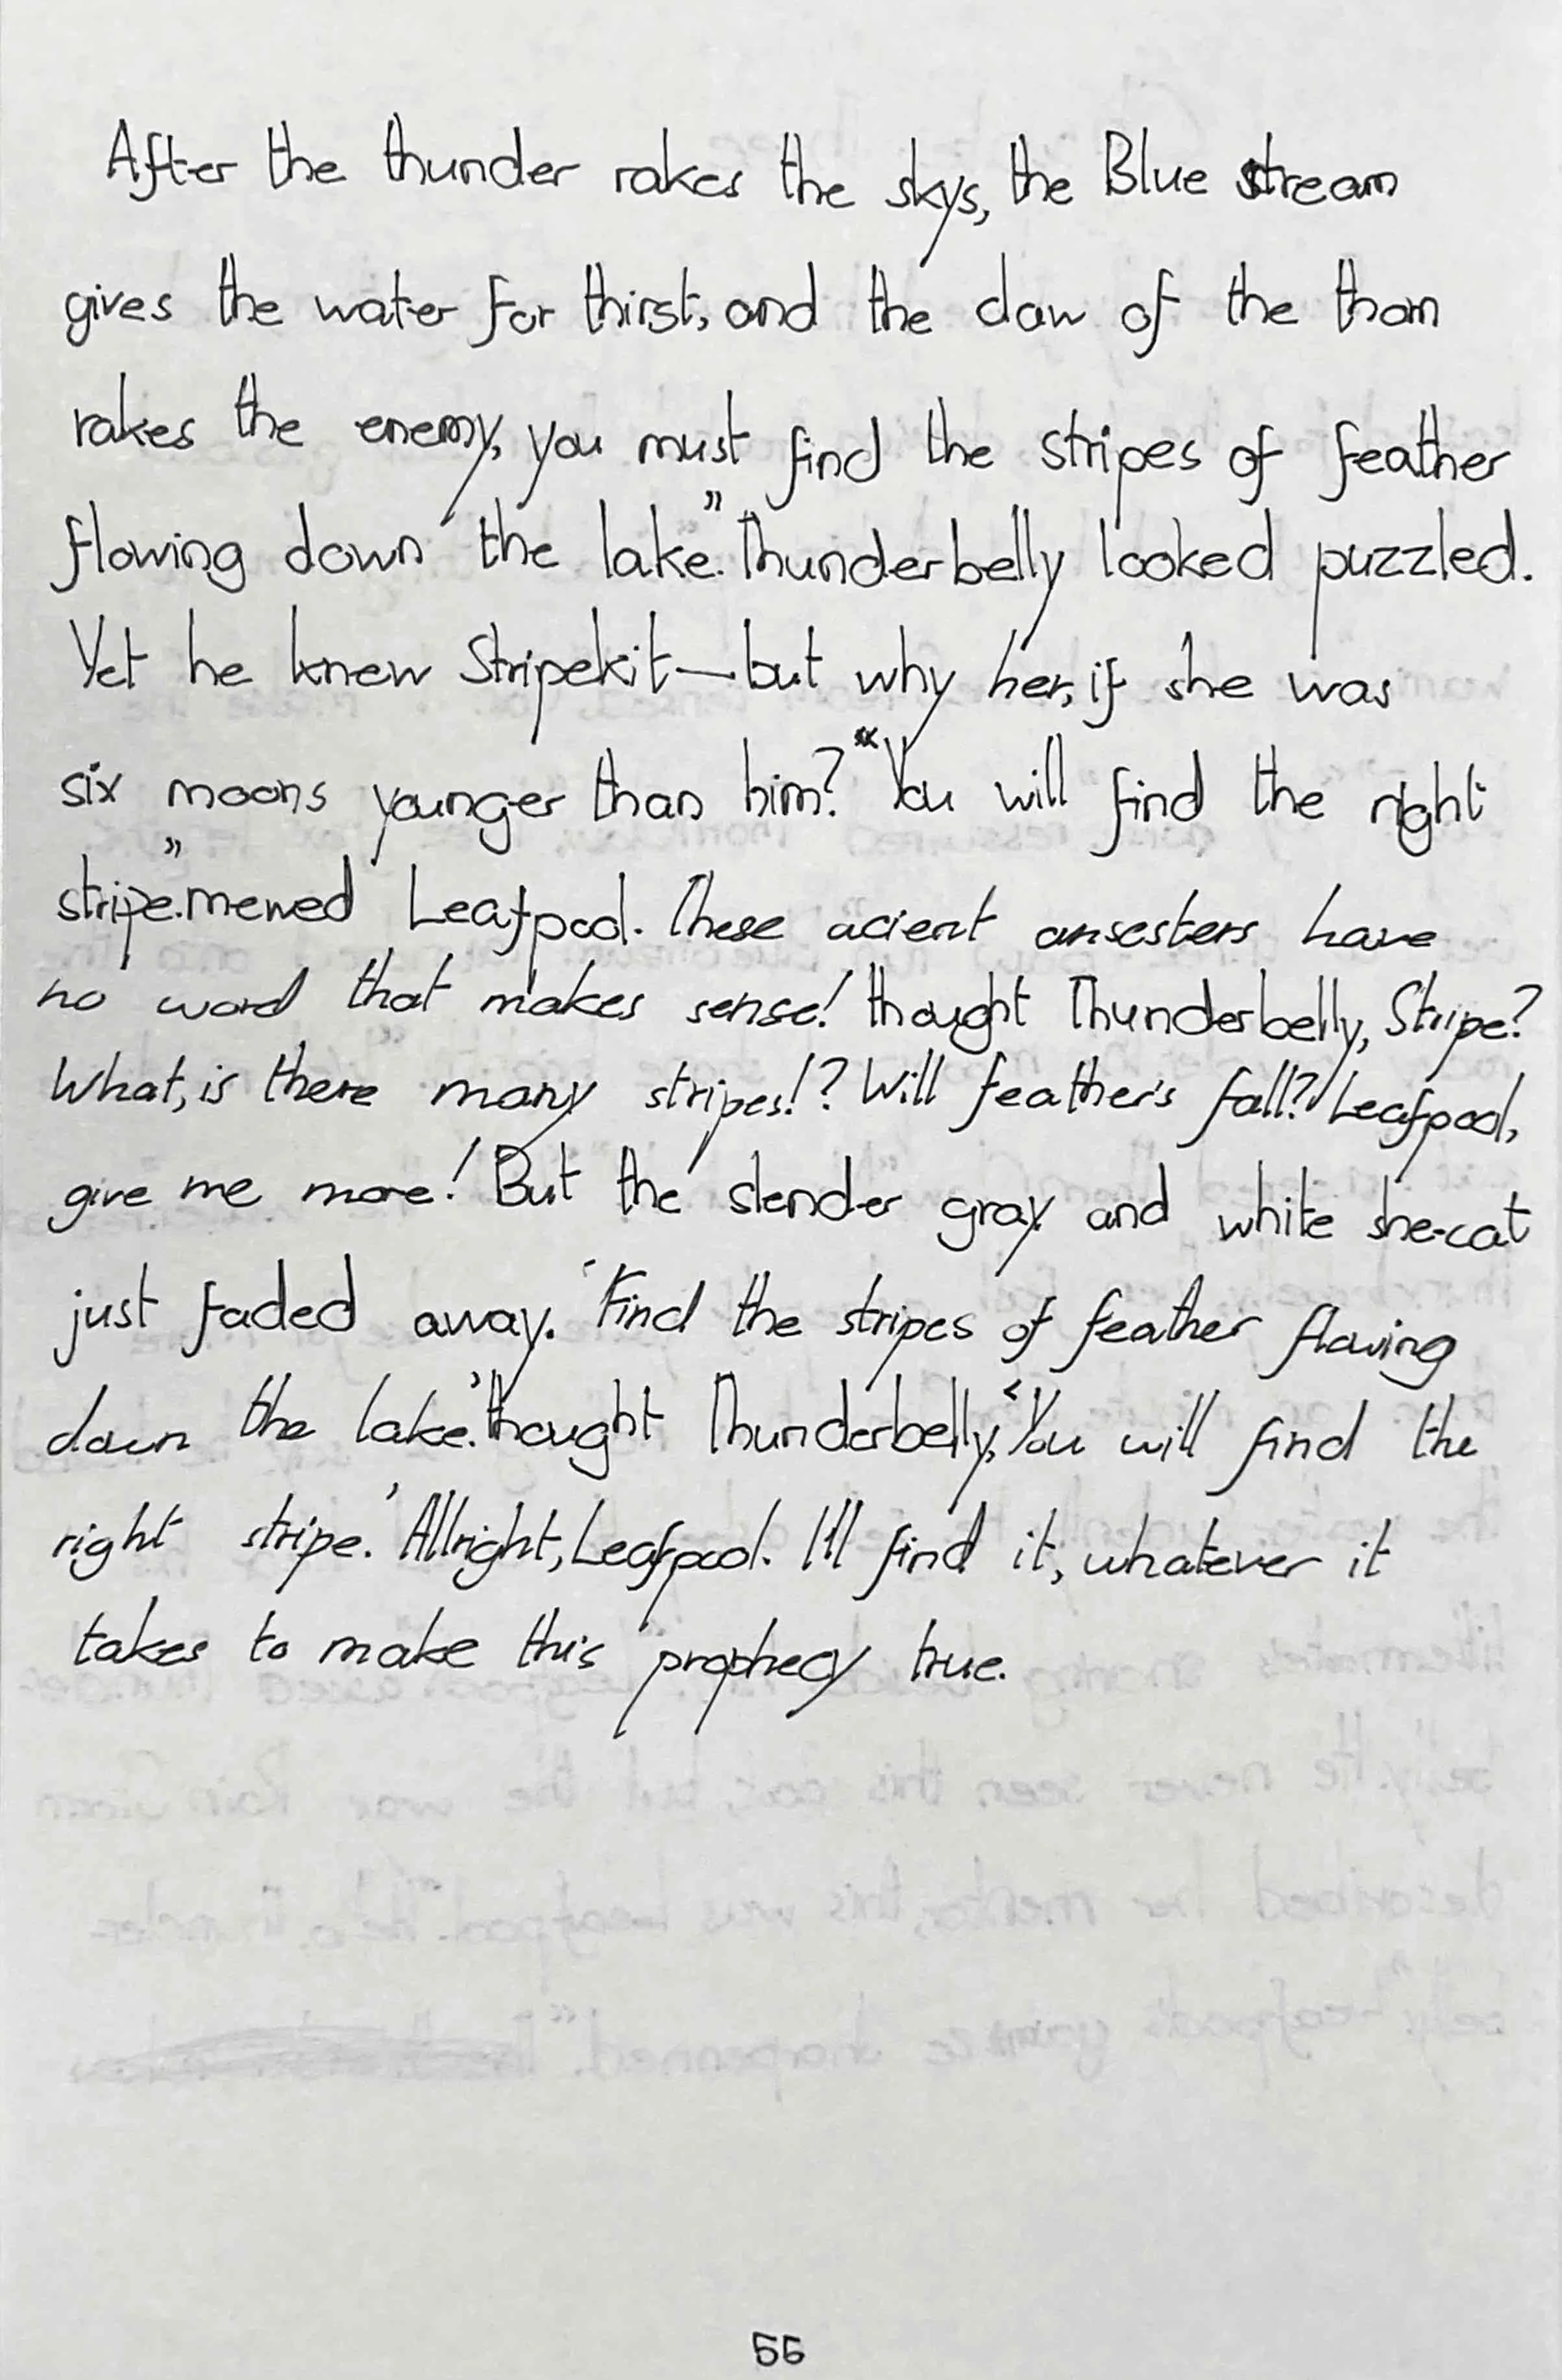 After the thunder rakes the skys, the Blue stream
gives the water for thirst, and the claw of the thorn
rakes the enemy, you must find the stripes of feather
flowing down the lake.” Thunderbelly looked puzzled.
Yet he knew Stripekit—but why her, if she was
six moons younger than him? “You will find the right
stripe.” mewed Leafpool. These acient ansesters have
no word that makes sense! thought Thunderbelly, Stripe?
What, is there many stripes!? Will feather's fall? Leafpool,
give me more! But the slender gray and white she-cat
just faded away. ‘Find the stripes of feather flowing
down the lake.’ thought Thunderbelly, ‘You will find the
right stripe.’ Allright, Leafpool. I'll find it, whatever it
takes to make this prophecy true.